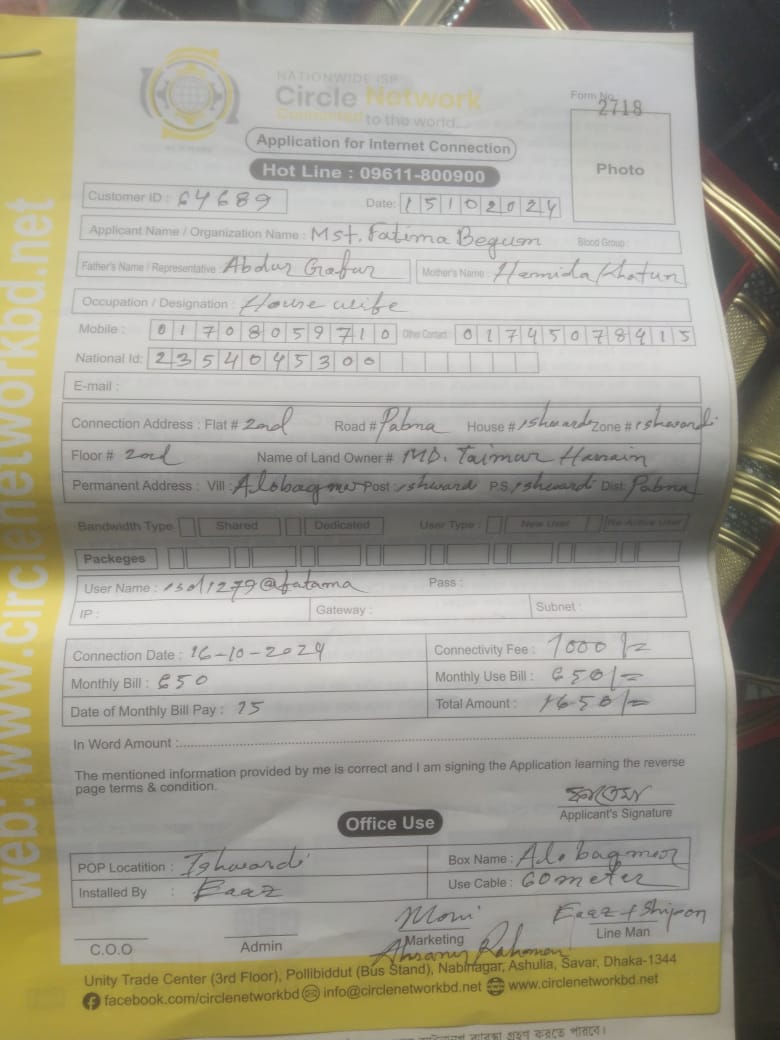 NATIONWIDE ISP
Circle Network
Connected to the world...
Form No.: 2718
Application for Internet Connection
Hot Line : 09611-800900
Photo
Customer ID : 64689 Date: 15102024
Applicant Name / Organization Name : Mst. Fatima Begum Blood Group :
Father's Name / Representative : Abdur Gafur Mother's Name : Hamida Khatun
Occupation / Designation : House wife
Mobile : 01708059710 Other Contact 01745078415
National Id: 2354045300
E-mail :
Connection Address : Flat # 2nd Road # Pabna House # ishwardi Zone # ishwardi
Floor # 2nd Name of Land Owner # MD. Taimur Hassain
Permanent Address : Vill: Alobagmor Post: ishward P.S, ishwardi Dist: Pabna
Bandwidth Type Shared Dedicated User Type : New User Re-Active User
Packeges
User Name : isd1279@fatama Pass :
IP : Gateway : Subnet :
Connection Date : 16-10-2024 Connectivity Fee : 1000/=
Monthly Bill : 650 Monthly Use Bill : 650/=
Date of Monthly Bill Pay : 15 Total Amount : 1650/=
In Word Amount :
The mentioned information provided by me is correct and I am signing the Application learning the reverse
page terms & condition.
Applicant's Signature
Office Use
POP Locatition : Ishwardi Box Name : Alobagmor
Installed By : Eaaz Use Cable : 60 meter
Moni Eaaz + Shipon
C.O.O Admin Marketing Line Man
Ahsanur Rahman
Unity Trade Center (3rd Floor), Pollibiddut (Bus Stand), Nabinagar, Ashulia, Savar, Dhaka-1344
facebook.com/circlenetworkbd info@circlenetworkbd.net www.circlenetworkbd.net
web: www.circlenetworkbd.net